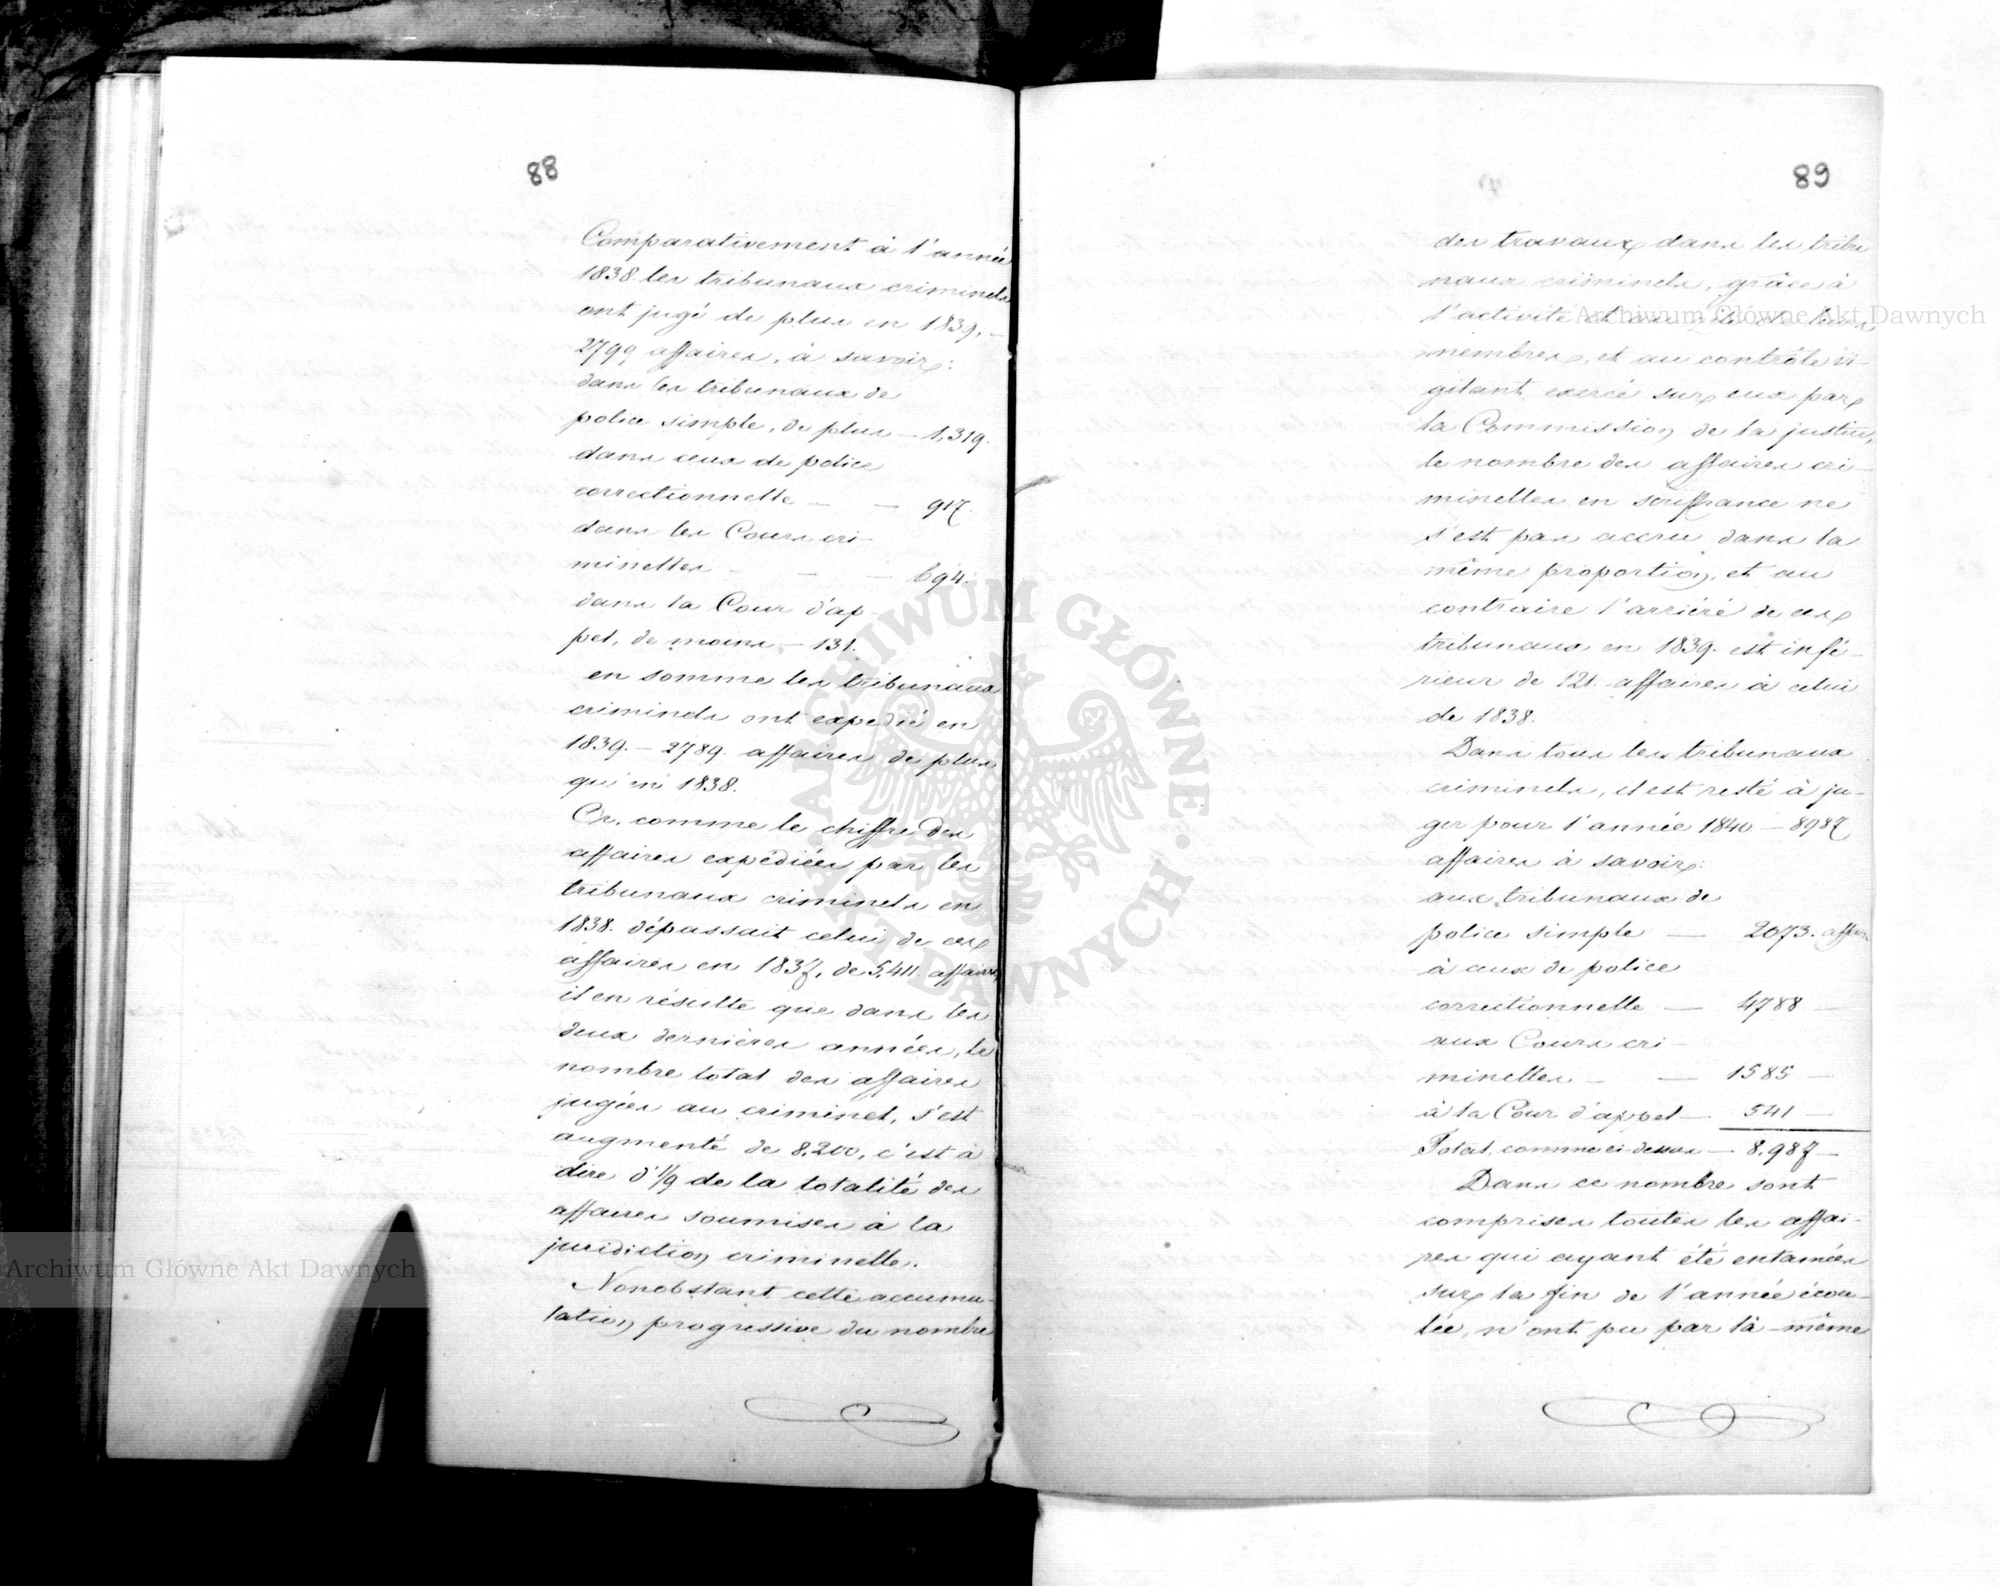 88
Comparativement à l'année
1838 les tribunaux criminels
ont jugé de plus en 1839, —
2799 affaires, à savoir:
dans les tribunaux de
police simple, de plus — 1,319.
dans ceux de police
correctionnelle — — 917.
dans les Cours cri-
minelles — — — 694.
dans la Cour d'ap-
pel, de moins — 131.
en somme les tribunaux
criminels ont expedié en
1839. — 2789. affaires de plus
qu'en 1838.
Or, comme le chiffre des
affaires expédiées par les
tribunaux criminels en
1838. dépassait celui de ces
affaires en 1837, de 5,411 affaires,
il en résulte que dans les
deux dernières années, le
nombre total des affaires
jugées au criminel, s'est
augmenté de 8,200, c'est à
dire d'1/9 de la totalité des
affaires soumises à la
juridiction criminelle.
Nonobstant cette accumu-
lation progressive du nombre
89
des travaux dans les tribu
naux criminels, grâce à
l'activité et au de leurs
membres, et au contrôle vi-
gilant exercé sur eux par
la Commission de la justice,
le nombre des affaires cri-
minelles en souffrance ne
s'est pas accru dans la
même proportion, et au
contraire l'arriéré de ces
tribunaux en 1839. est infé-
rieur de 121. affaires à celui
de 1838.
Dans tous les tribunaux
criminels, il est resté à ju-
ger pour l'année 1840 — 8987
affaires à savoir:
aux tribunaux de
police simple — 2073. affair
à ceux de police
correctionnelle — 4788 —
aux Cours cri-
minelles — — 1585 —
à la Cour d'appel — 541 —
Total, comme ci-dessus — 8.987 —
Dans ce nombre sont
comprises toutes les affai-
res qui ayant été entamées
sur la fin de l'année écou-
lée, n'ont pu par là-même
Archiwum Główne Akt Dawnych
Archiwum Główne Akt Dawnych
ARCHIWUM GŁÓWNE • AKT DAWNYCH •